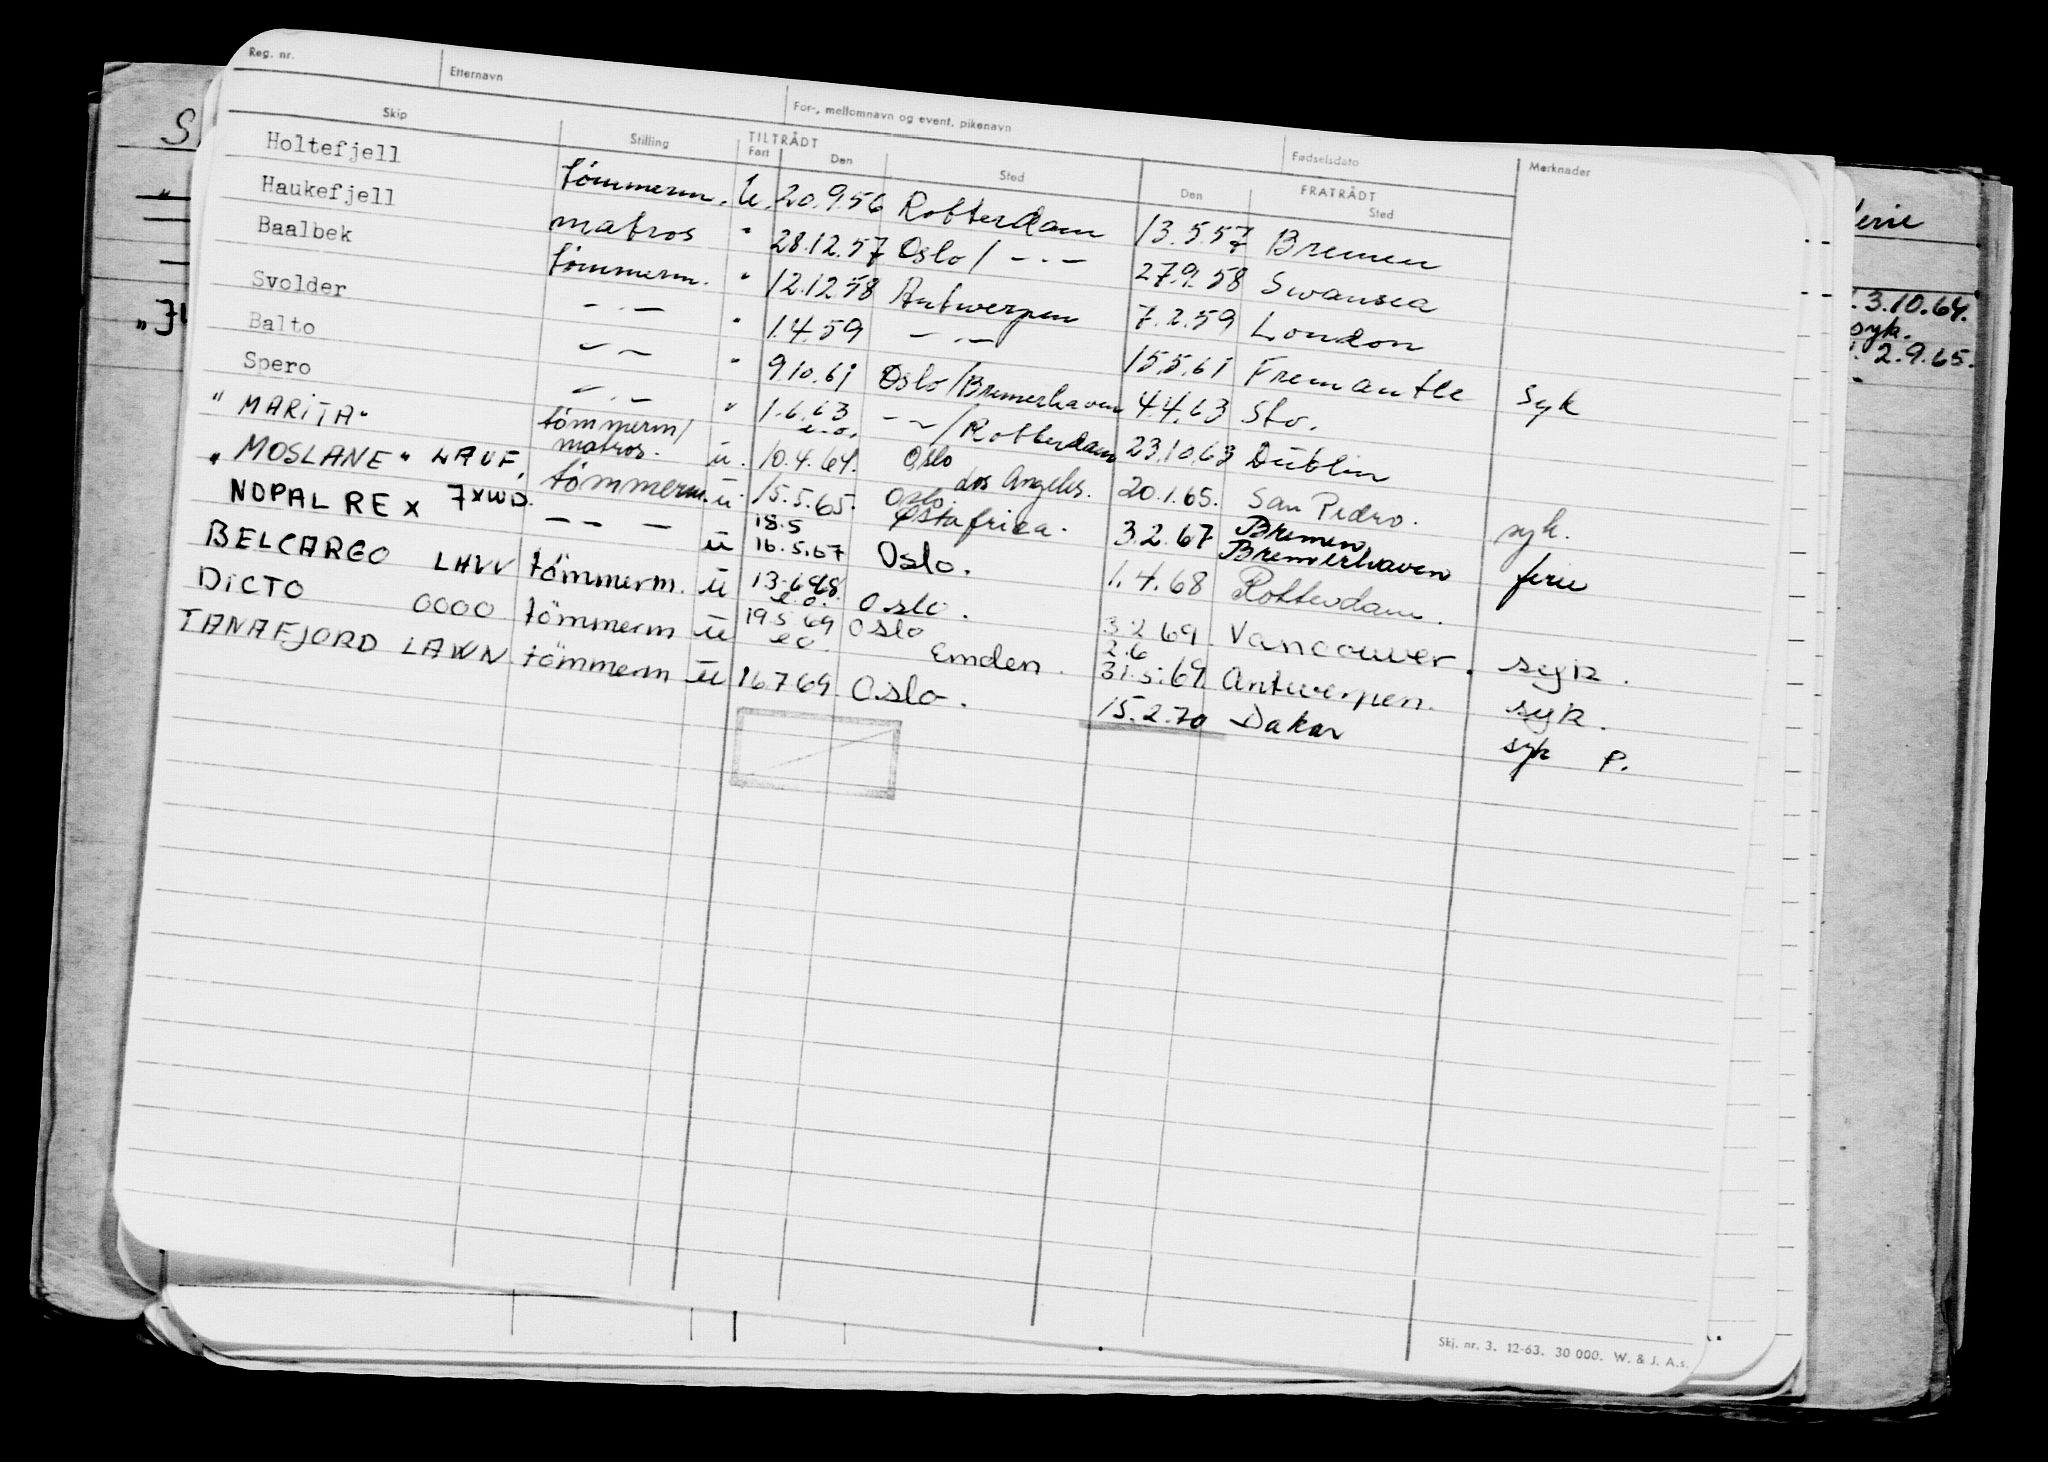 Reg. nr. Etternavn For-, mellomnavn og event. pikenavn Fødselsdato Merknader
Skip Stilling TILTRÅDT FRATRÅDT
Fart Den Sted Den Sted
Holtefjell tømmerm. u. 20.9.56 Rotterdam 13.5.57 Bremen
Haukefjell matros " 28.12.57 Oslo / -.- 27.9.58 Swansea
Baalbek tømmerm. " 12.12.58 Antwerpen 7.2.59 London
Svolder -.- " 1.4.59 -.- 15.5.61 Fremantle syk
Balto -.- " 9.10.61 Oslo/Bremerhaven 4.4.63 Sto.
Spero -.- " 1.6.63 e.o. -.-/Rotterdam 23.10.63 Dublin
"MARITA" tømmerm/ matros. u. 10.4.64. Oslo Los Angeles. 20.1.65. San Pedro. syk.
"MOSLANE" LAUF, tømmerm. u. 15.5.65. Oslo. Østafrica. 3.2.67 Bremen Bremerhaven ferie
NOPAL REX 7XWD. -- - u 18.5 16.5.67 Oslo. 1.4.68 Rotterdam.
BELCARGO LHVV tømmerm. u 13.6.68. e.o. Oslo. 3.2.69. Vancouver. syk.
DICTO OOOO tømmerm u 19.5.69 e.o. Oslo Emden. 2.6 31.5.69. Antwerpen. syk.
TANAFJORD LAWN tømmerm u 16.7.69 Oslo. 15.2.70 Dakar syk P.
ferie
3.10.64.
syk.
2.9.65.
Skj. nr. 3. 12-63. 30 000. W. & J. A.s.